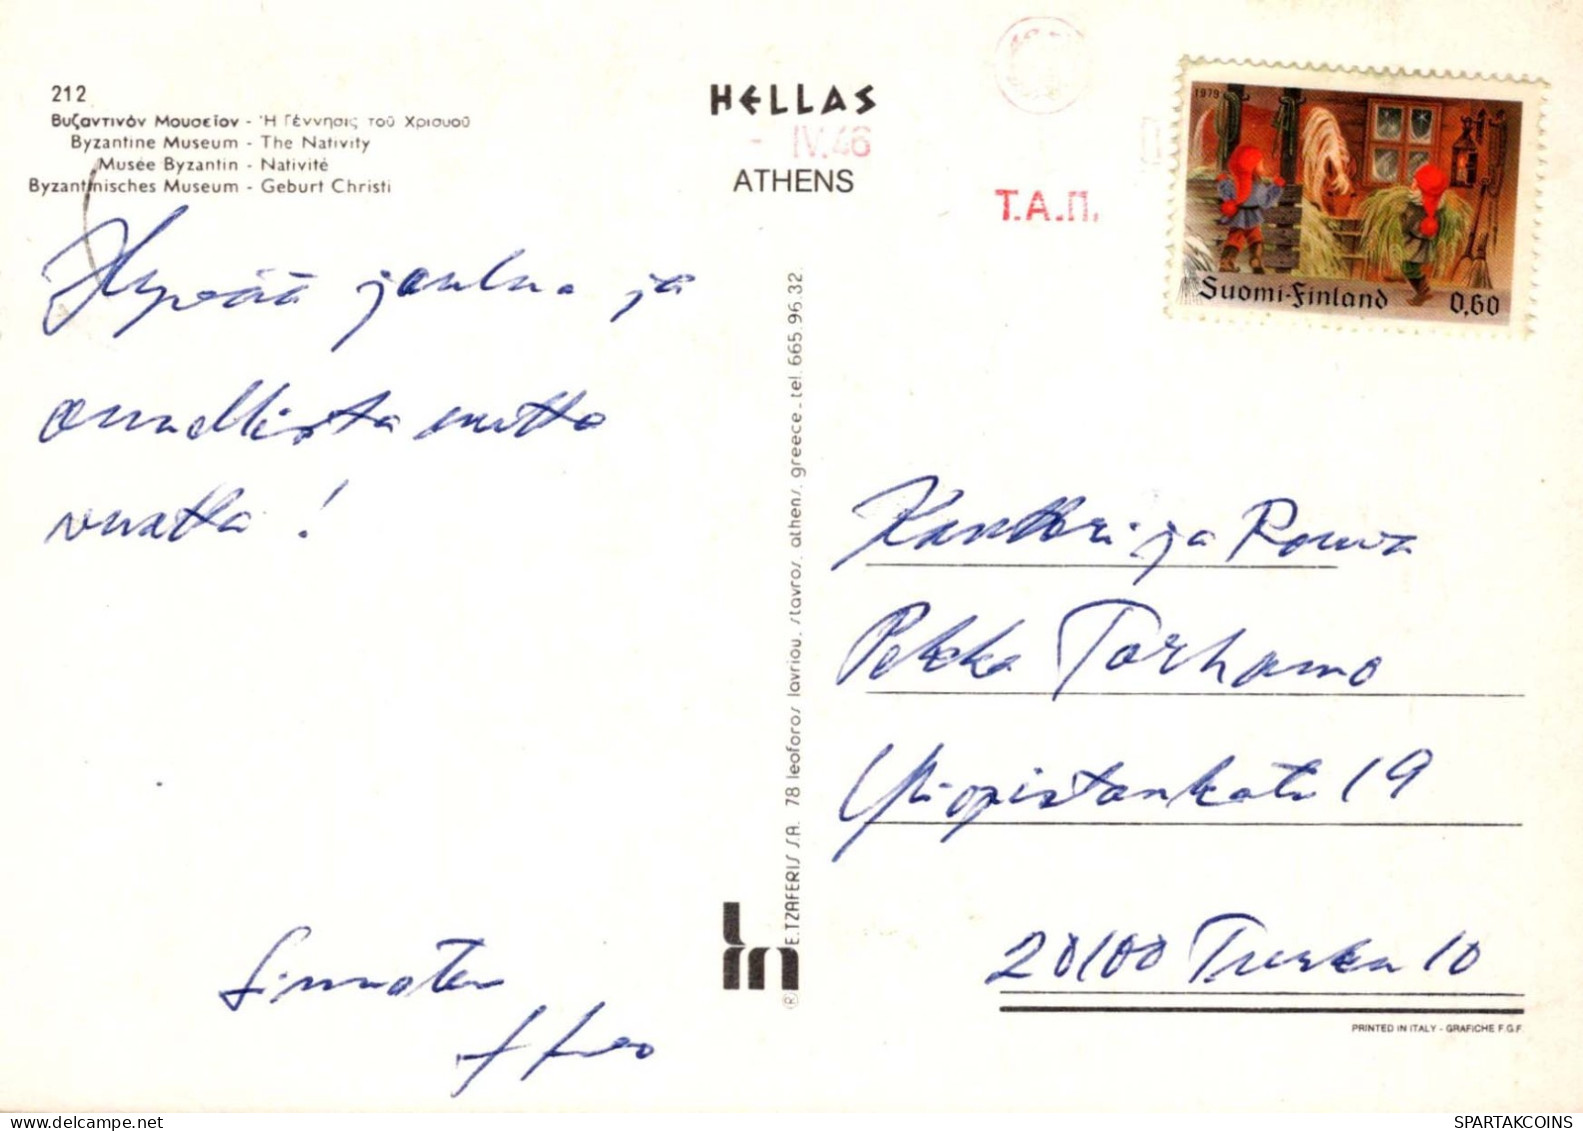 212
Βυζαντινόν Μουσεῖον - Ἡ Γέννησις τοῦ Χρισυοῦ
Byzantine Museum - The Nativity
Musée Byzantin - Nativité
Byzantinisches Museum - Geburt Christi
HELLAS
- IV.46
ATHENS
Τ.Α.Π.
1979
Suomi-Finland 0,60
Hyvää joulua ja
onnellista uutta
vuotta!
E.TZAFERIS S.A. 78 leoforos lavriou, stavros, athens, greece - tel. 665.96.32
®
Kanttori ja Rouva
Pekka Torhamo
Yliopistonkatu 19
20100 Turku 10
PRINTED IN ITALY - GRAFICHE F.G.F.
SPARTAKCOINS